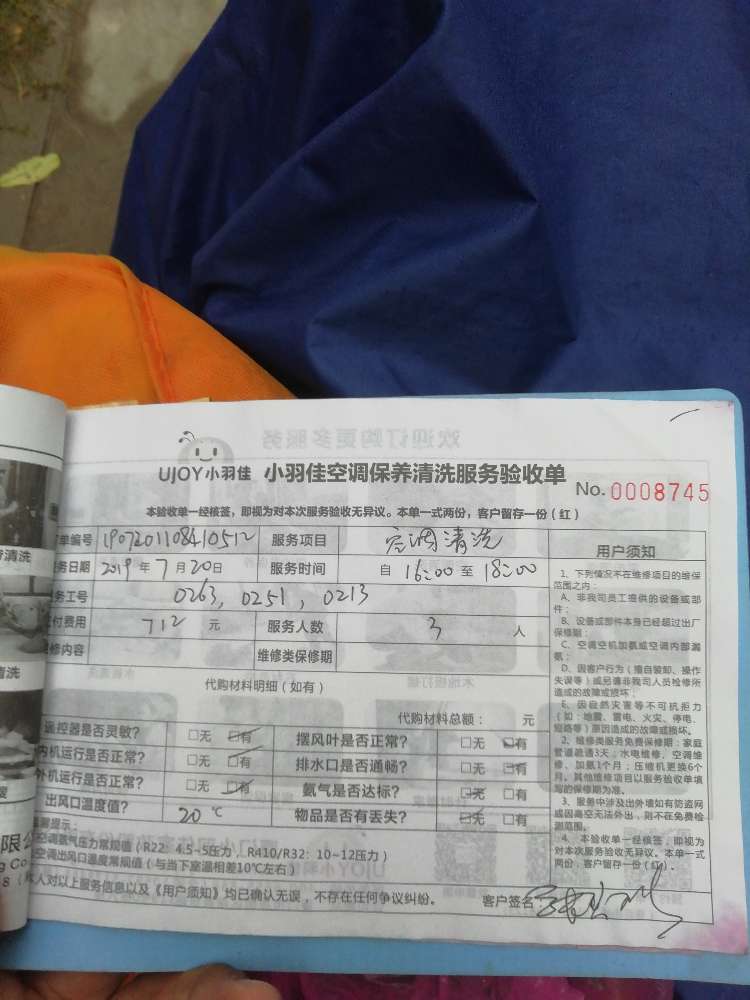 UJOY小羽佳 小羽佳空调保养清洗服务验收单
No. 0008745
本验收单一经核签，即视为对本次服务验收无异议。本单一式两份，客户留存一份（红）
单编号 1907201108410512 服务项目 空调清洗
务日期 2019年7月20日 服务时间 自 16:00 至 18:00
务工号 0263, 0251, 0213
付费用 712 元 服务人数 3 人
修内容 维修类保修期
代购材料明细（如有）
代购材料总额： 元
遥控器是否灵敏？ □无 □有 摆风叶是否正常？ □无 □有
内机运行是否正常？ □无 □有 排水口是否通畅？ □无 □有
外机运行是否正常？ □无 □有 氨气是否达标？ □无 □有
出风口温度值？ 20 ℃ 物品是否有丢失？ □无 □有
提示：
空调氨气压力常规值（R22：4.5-5压力，R410/R32：10-12压力）
空调出风口温度常规值（与当下室温相差10℃左右）
本人对以上服务信息以及《用户须知》均已确认无误，不存在任何争议纠纷。 客户签名：
用户须知
1、下列情况不在维修项目的维保
范围之内：
A、非我司员工提供的设备或部
件；
B、设备或部件本身已经超过出厂
保修期；
C、空调空机加氨或空调内部漏
氨；
D、因客户行为（擅自装卸、操作
失误等）或另请非我司人员检修所
造成的故障或损坏；
E、因自然灾害等不可抗拒力
（如：地震、雷电、火灾、停电、
短路等）原因造成的故障或损坏。
2、维修类服务免费保修期：家庭
管道疏通3天；水电维修、空调维
修、加氨1个月；压缩机更换6个
月。其他维修项目以服务验收单填
写的保修期为准。
3、服务中涉及出外墙如有防盗网
或因高空无法外出，则不在免费检
测范围。
4、本验收单一经核签，即视为
对本次服务验收无异议。本单一式
两份，客户留存一份（红）。
清洗
清洗
限公